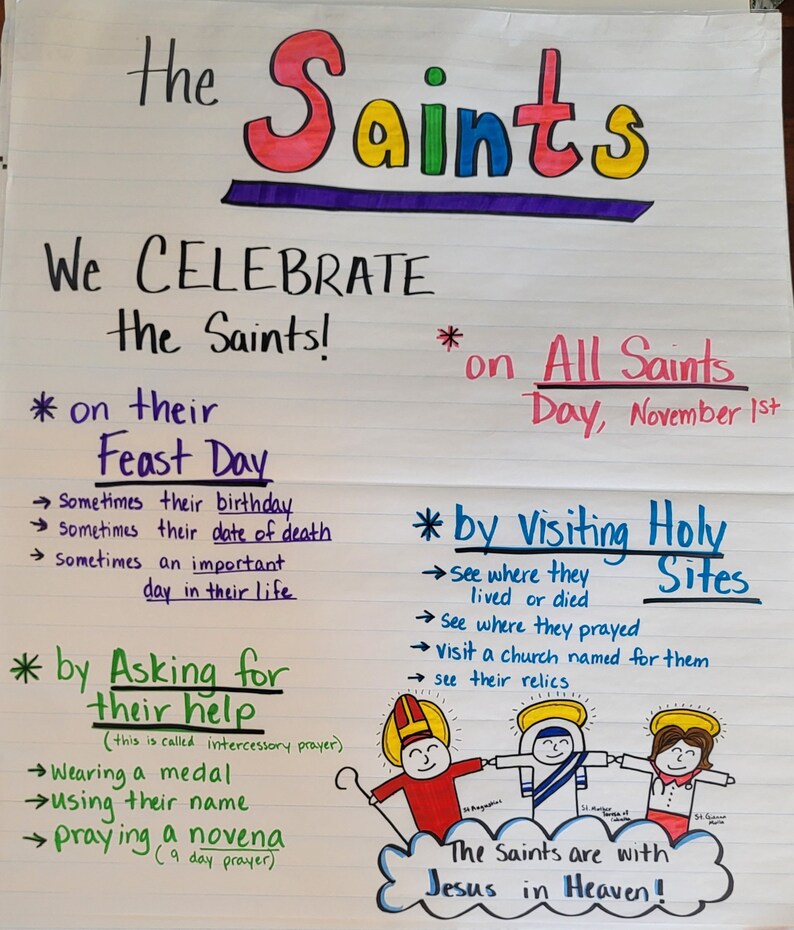 the Saints
We CELEBRATE
the Saints!
* on All Saints
Day, November 1st
* on their
Feast Day
→ sometimes their birthday
→ sometimes their date of death
→ sometimes an important
day in their life
* by Visiting Holy
Sites
→ see where they
lived or died
→ see where they prayed
→ visit a church named for them
→ see their relics
* by Asking for
their help
(this is called intercessory prayer)
→ wearing a medal
→ using their name
→ praying a novena
(9 day prayer)
St. Augustine
St. Mother
Teresa of
Calcutta
St. Gianna
Molla
The Saints are with
Jesus in Heaven!